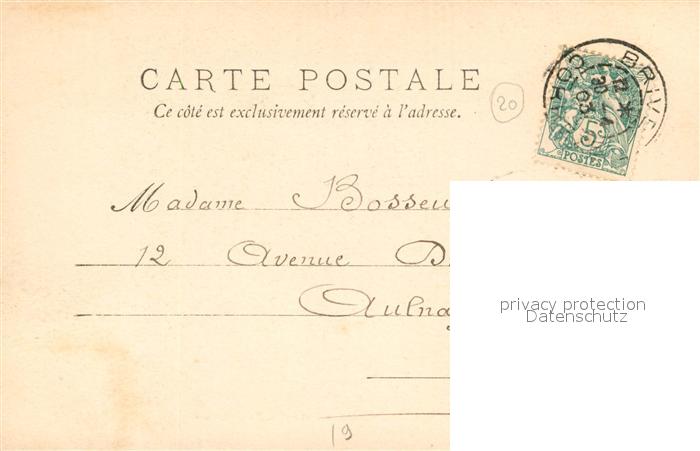 CARTE POSTALE
Ce côté est exclusivement réservé à l'adresse.
20
BRIVE
5c
POSTES
Madame Bosseu
12 Avenue D
Aulnay
19
privacy protection
Datenschutz